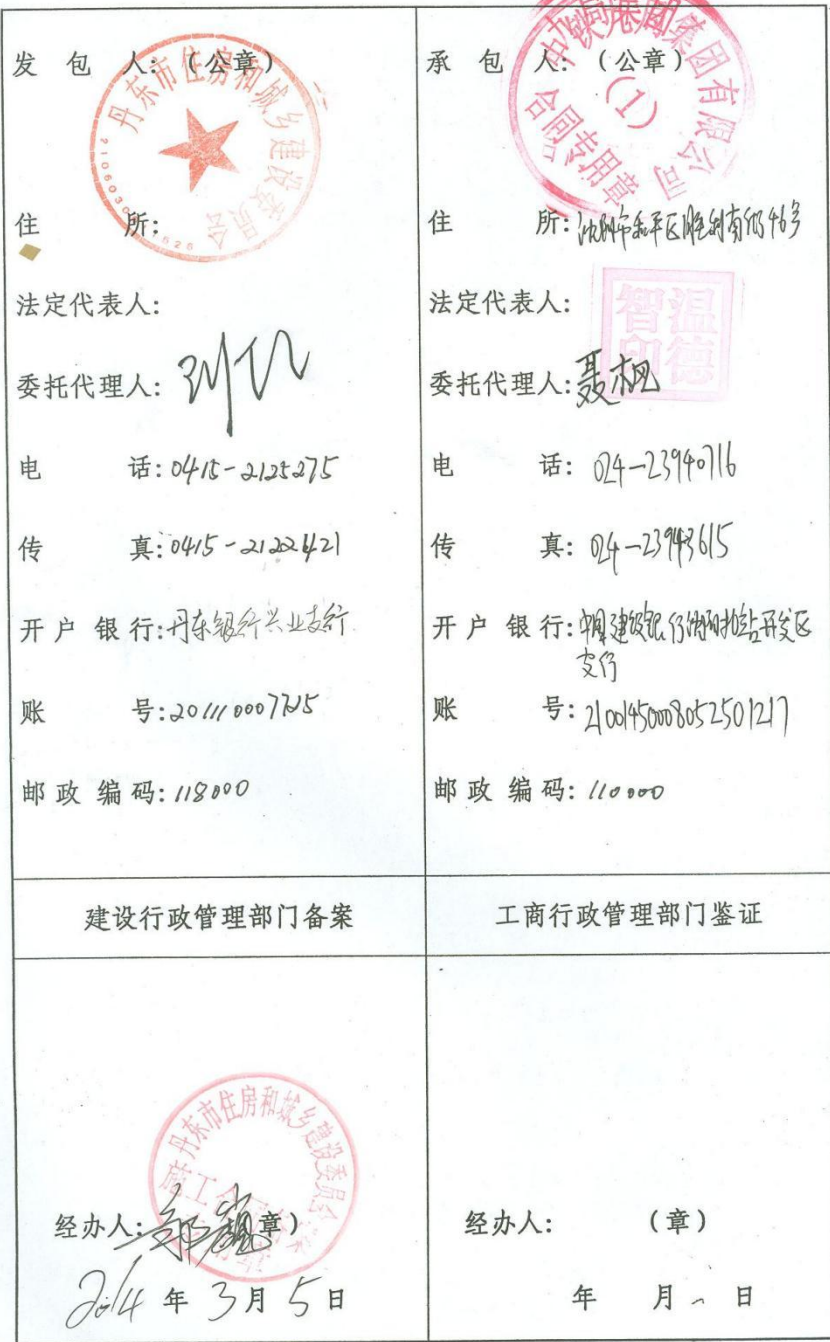 发包人:（公章）
丹东市住房和城乡建设委员会
住所:
法定代表人:
委托代理人:
电话:0415-2125275
传真:0415-2122421
开户银行:丹东银行兴业支行
账号:
邮政编码:118000
承包人:（公章）
集团有限公司
(1)
合同专用章
住所:沈阳市和平区胜利南街46号
法定代表人:
温德智印
委托代理人:聂枫
电话:024-23940716
传真:024-23943615
开户银行:中国建设银行沈阳 开发区
支行
账号:21001450008052501217
邮政编码:110000
建设行政管理部门备案
工商行政管理部门鉴证
丹东市住房和城乡建设委员会
经办人: 章）
2014年3月5日
经办人:（章）
年 月 日